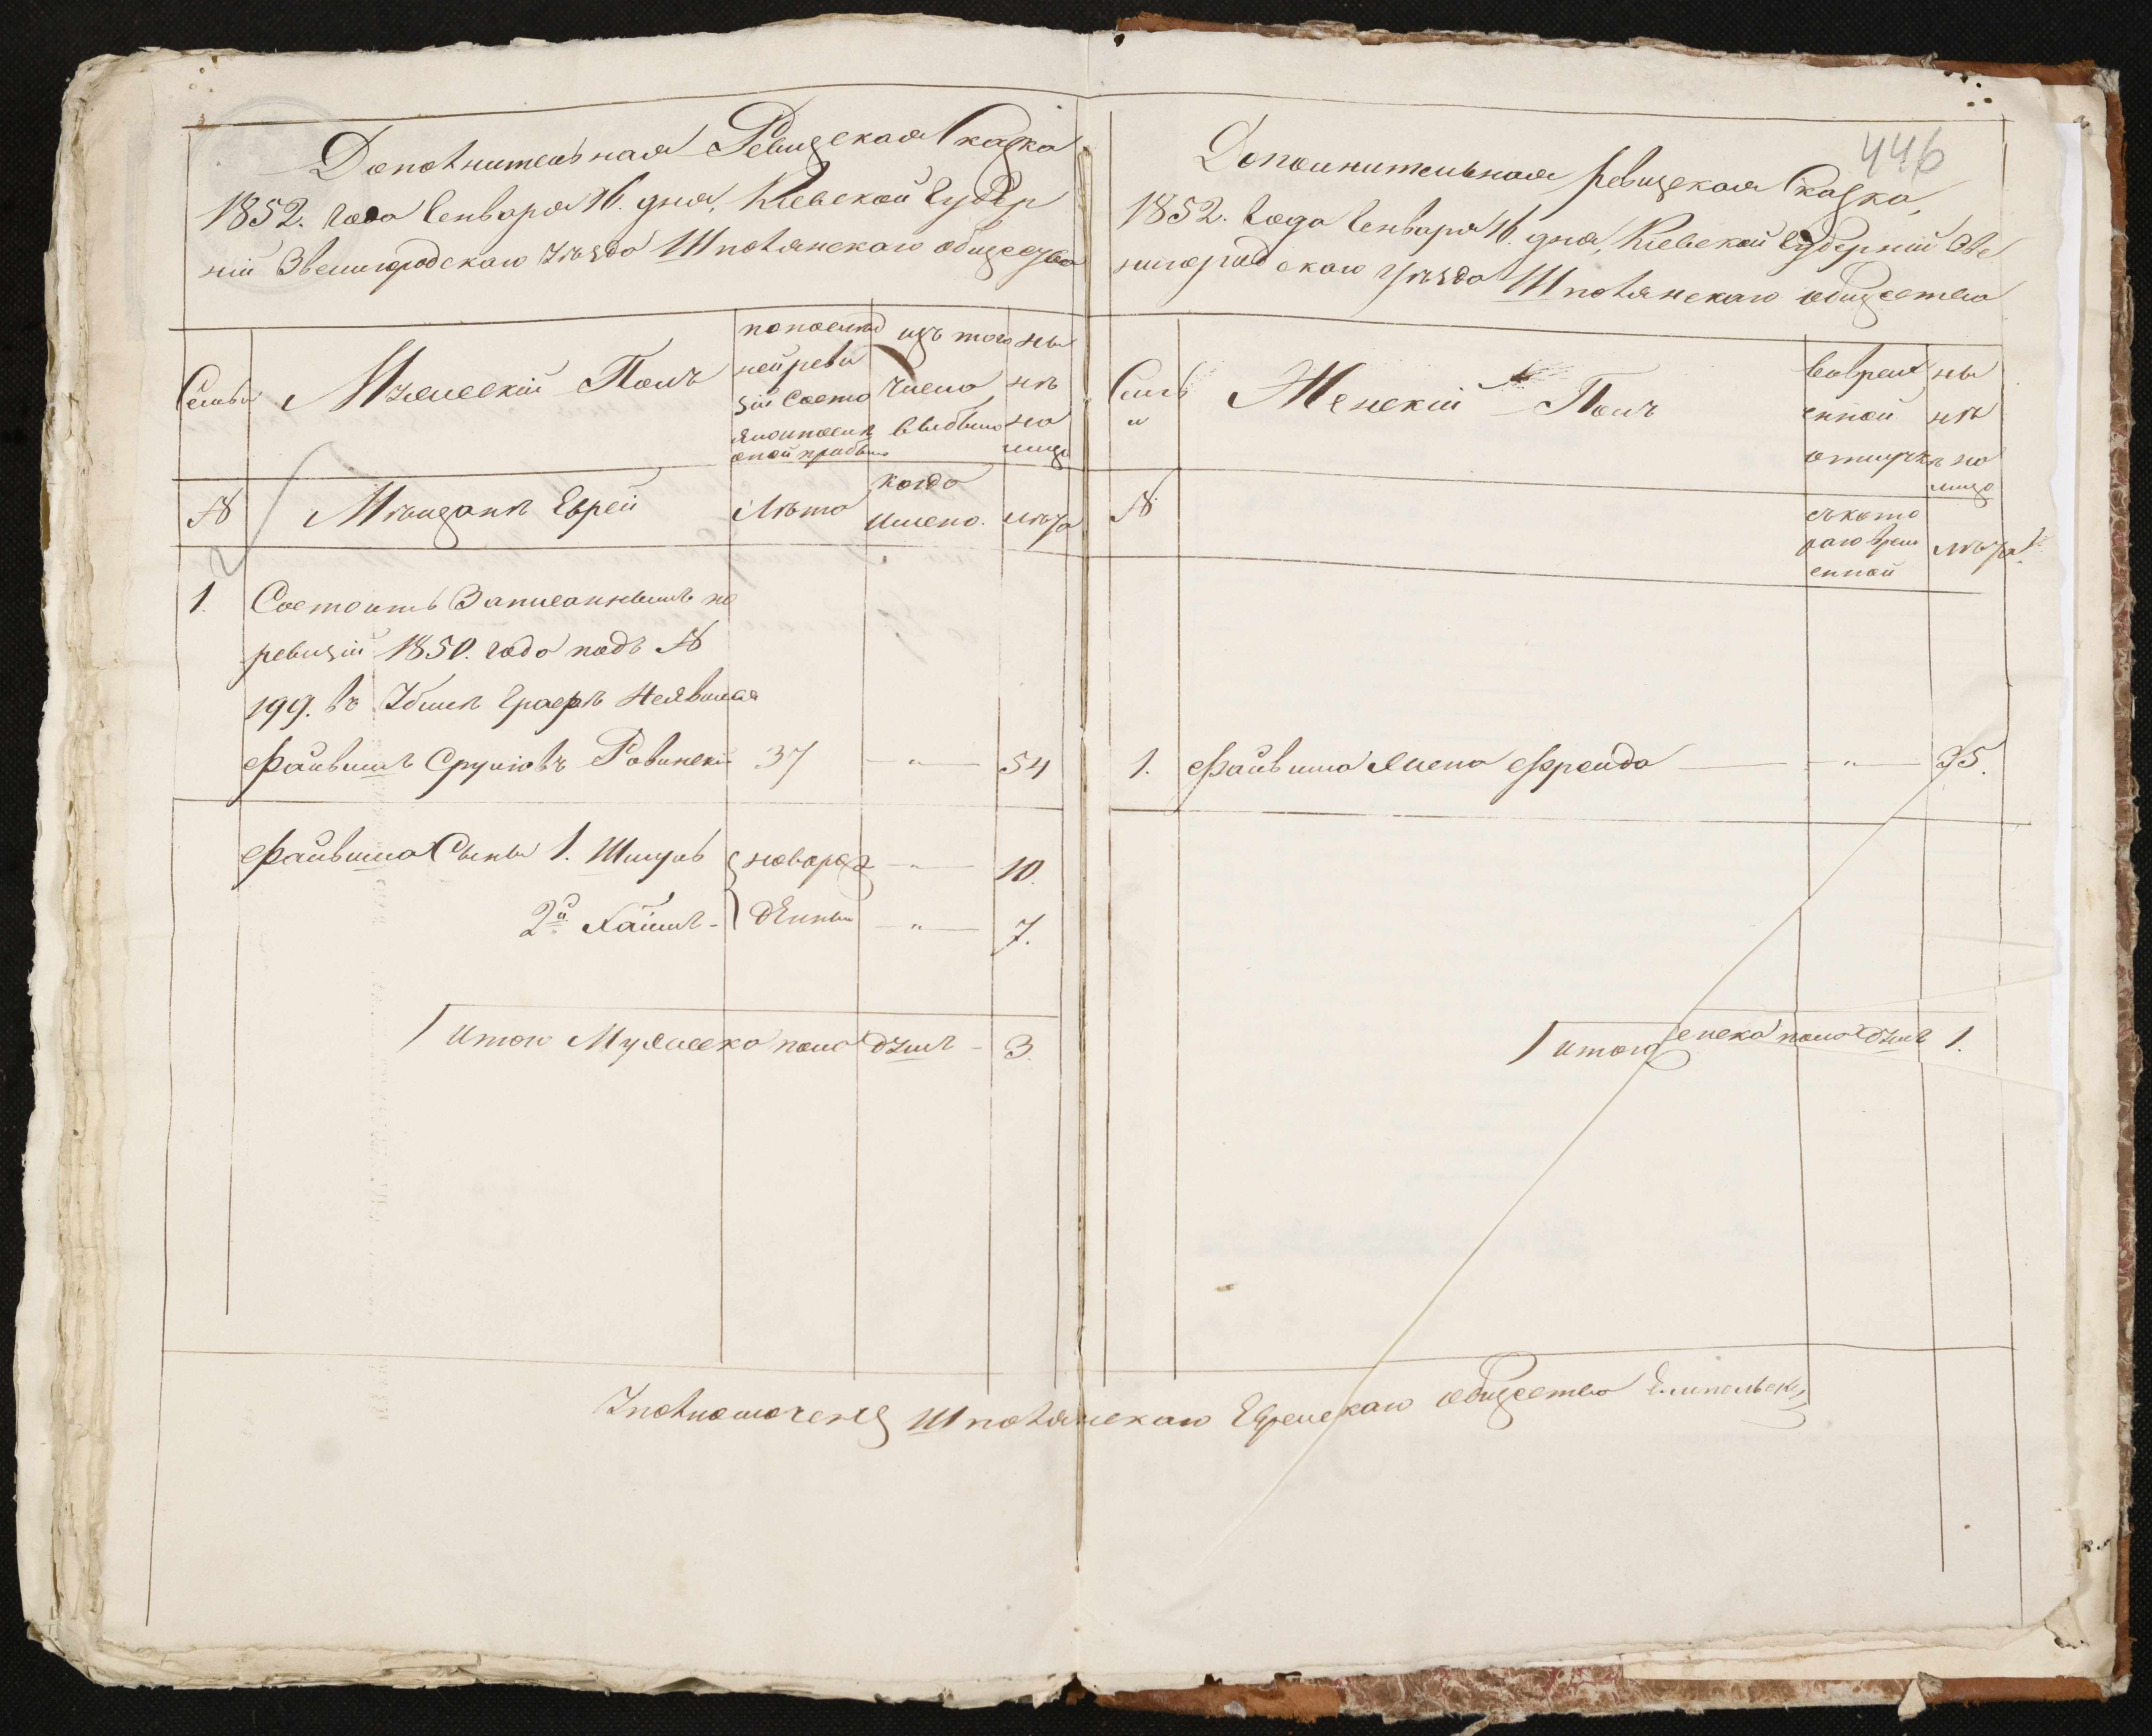 446
Дополнительная Ревизская Сказка
1852. года Генваря 16. дня, Киевской Губер
нiи Звенигородскаго Уезда Шполянскаго общества
Семьи
Мужескiй Полъ
по последней
ней реви
зiи состо
яло и после
оной прибыло
изъ того
числа
выбыло
ны
не
на
лицо
№
Мещане Евреи
Лета
когда
имено.
лета
1. Состоитъ Записаннымъ по
ревизiи 1850. года подъ №
199. въ графе Неявился
Файвишъ Срулiовъ Ровинскiй 37 — „ — 54
Файвиша Сыны 1. Шмуль новорож — „ — 10.
2й Хаимъ - денны — „ — 7.
Итого Мужеска пола душъ - 3.
Дополнительная Ревизская Сказка,
1852. Года Генваря 16. дня, Киевской Губернiи Зве
нигородскаго Уезда Шполянскаго общества
Семь
и
Женскiй Полъ
Во врем
енной
отлучке
ны
не
на
лицо
№
съ кото
раго врем
енной
лета
1. Файвиша Жена Фрейда — „ — 35.
Итого Женска пола душъ 1.
Уполномоченый Шполянскаго Еврейскаго общества